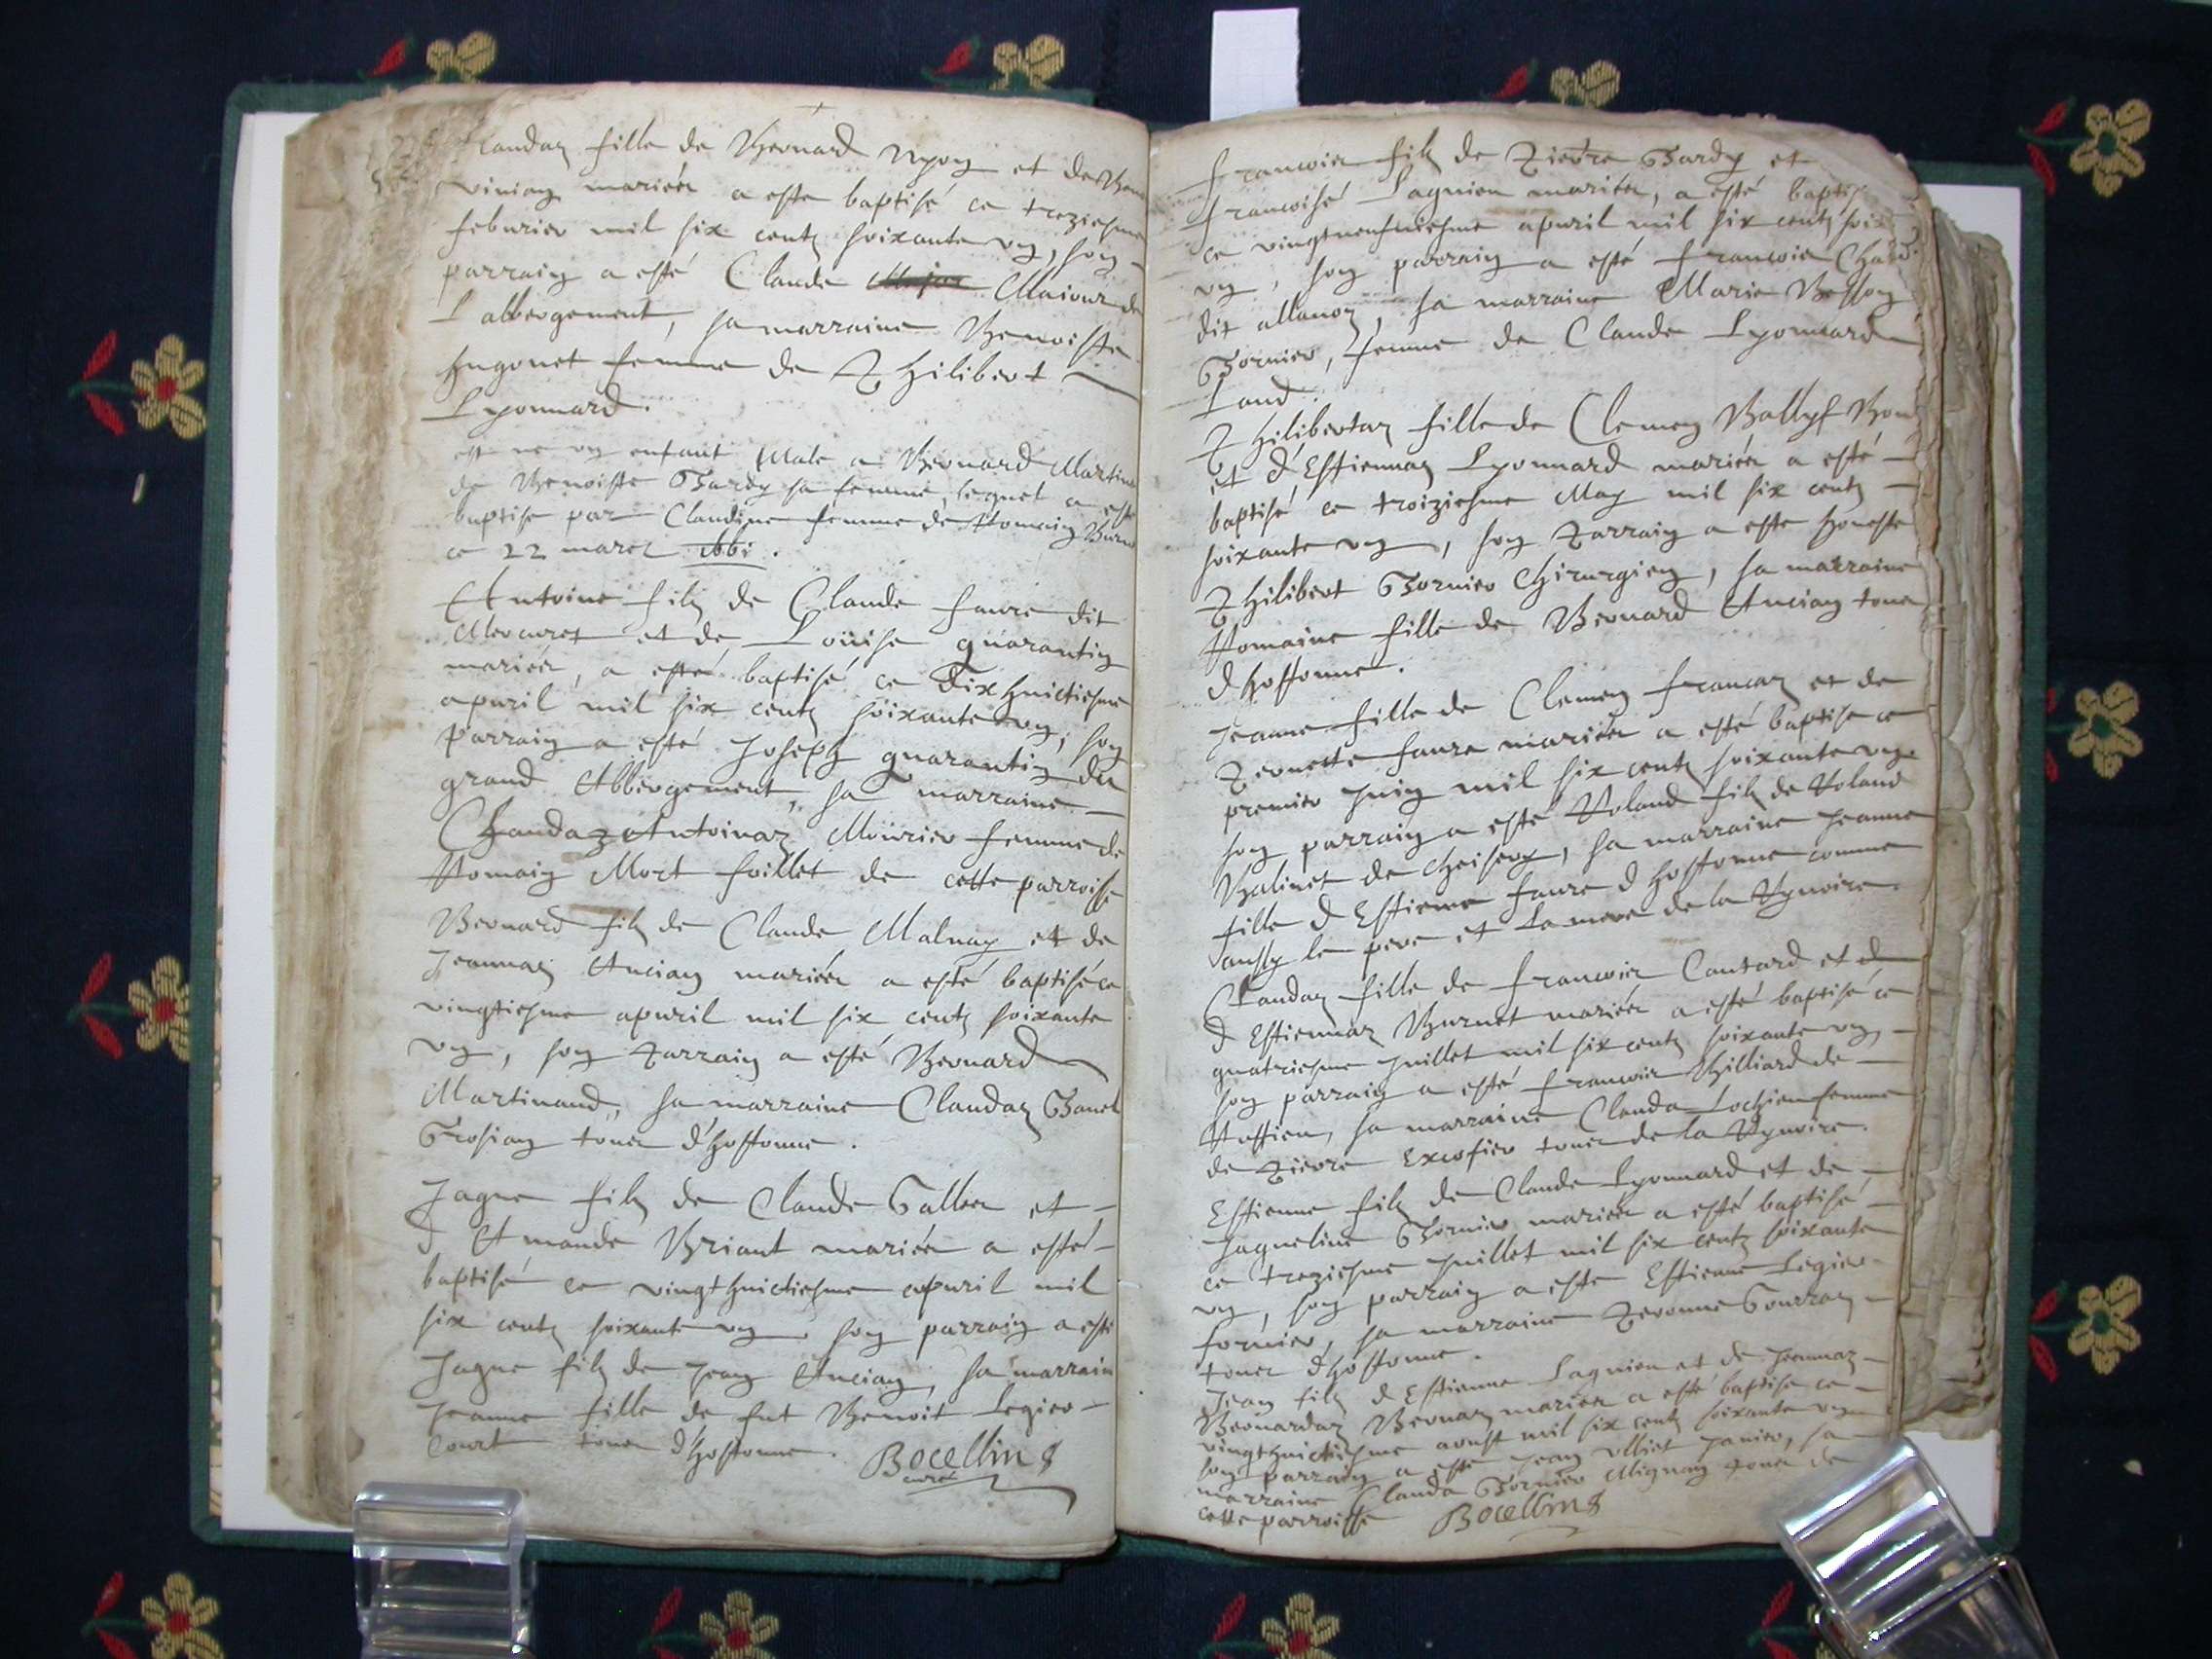 Claudaz fille de Bernard Nyoy et de
Viviaz mariéz a este baptisé ce treziesme
feburier mil six centz soixante vng, son
parrain a esté Claude Maiour de
L'abbergement, sa marraine Benoiste
Hugonet femme de Philibert
Lyonnard.
est ne vng enfant Male a Bernard Martin
de Benoiste Gardy sa femme, lequel a esté
baptise par Claudine femme de Romain
ce 22 marcz 1661.
Antoine filz de Claude Faure dit
Mercuret et de Loüise quarantin
mariéz, a esté baptisé ce dix huictiesme
apuril mil six centz soixante vng, son
parrain a esté Joseph quarantin du
grand Abbergement, sa marraine
Claudaz Antoinaz Moirier femme de
Romain Mort foillet de cette parroisse
Bernard filz de Claude Malnay et de
Jeannaz Ancian mariéz a esté baptisé ce
vingtiesme apuril mil six centz soixante
vng, son Parrain a esté Bernard
Martinand, sa marraine Claudaz
Grosian touez d'hostonne.
Jaque filz de Claude Galber et
d'Amande Briant mariéz a esté
baptisé ce vingthuictiesme apuril mil
six centz soixante vng, son parrain a esté
Jaque filz de Jean Ancian, sa marraine
Jeanne fille de fut Benoit Legier
Court touez d'hostonne. Bocellins
curé
Francois filz de Pierre Gardy et
Francoise Lagnieu mariéz, a esté baptisé
ce vingtneufuiesme apuril mil six centz soix
vng, son parrain a esté Francois
dit allanoz, sa marraine Marie Besson
Gornier, femme de Claude Lyonnard
Land.
Philibertaz fille de Clemen Ballyf
et d'Estiennaz Lyonnard mariéz a esté
baptisé ce troiziesme May mil six centz
soixante vng, son Parrain a este honeste
Philibert Gornier Chirurgien, sa marraine
Romaine fille de Bernard Ancian touez
d'hostonne.
Jeanne fille de Clemen Francaz et de
Pernette Faure mariéz a esté baptise ce
premier Juin mil six centz soixante vng
son parrain a este Roland filz de Roland
Balinet de Cheisery, sa marraine Jeanne
fille d'Estienne Faure d'hostonne comme
aussy le pere et la mere de la Rynoire.
Claudaz fille de Francois Cautard et d
d'Estiennaz Burnet mariéz a esté baptisé ce
quatriesme Juillet mil six centz soixante vng,
son parrain a esté Francois Billiard de
Ruffieu, sa marraine Clauda Lochien femme
de Pierre Excofier touez de la Rynoire.
Estienne filz de Claude Lyonnard et de
Jaqueline Gornier mariéz a esté baptisé
ce treziesme Juillet mil six centz soixante
vng, son parrain a este Estienne Legier
fornier, sa marraine Peronne Gourraz
touez d'hostonne.
Jean filz d'Estienne Lagnieu et de Jeannaz
Bernardaz Bernaz mariéz a esté baptise ce
vingthuictiesme aoust mil six centz soixante vng
son parrain a este Jean Janier, sa
marraine Clauda Gornier Mignan touez de
cette parroisse Bocellins